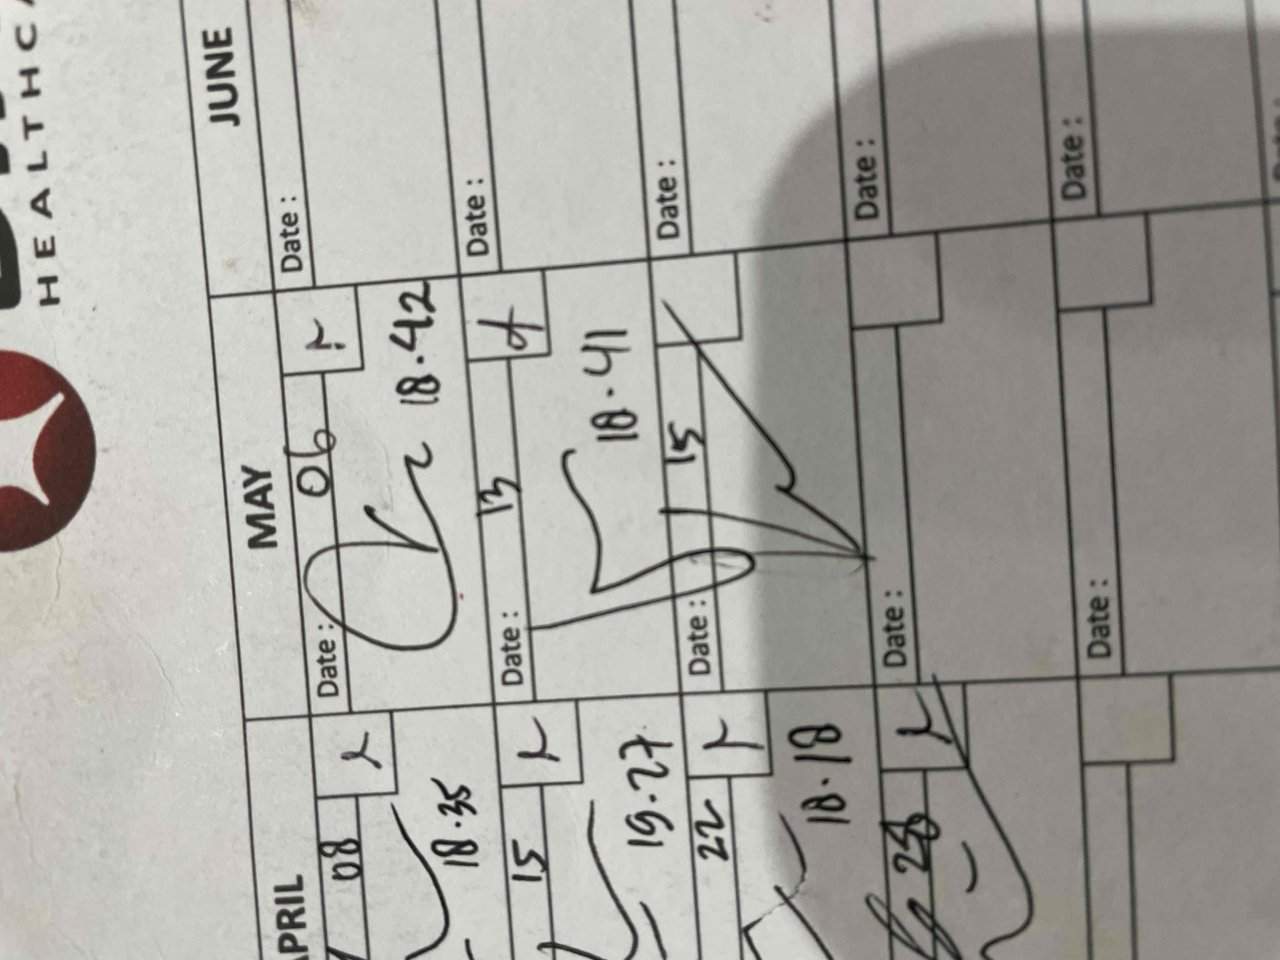 HEALTHC
JUNE
Date :
Date :
Date :
Date :
Date :
MAY
Date : 06
18.42
Date : 13
18.41
Date : 15
Date :
Date :
PRIL
08
18.35
15
19.27
22
18.18
28